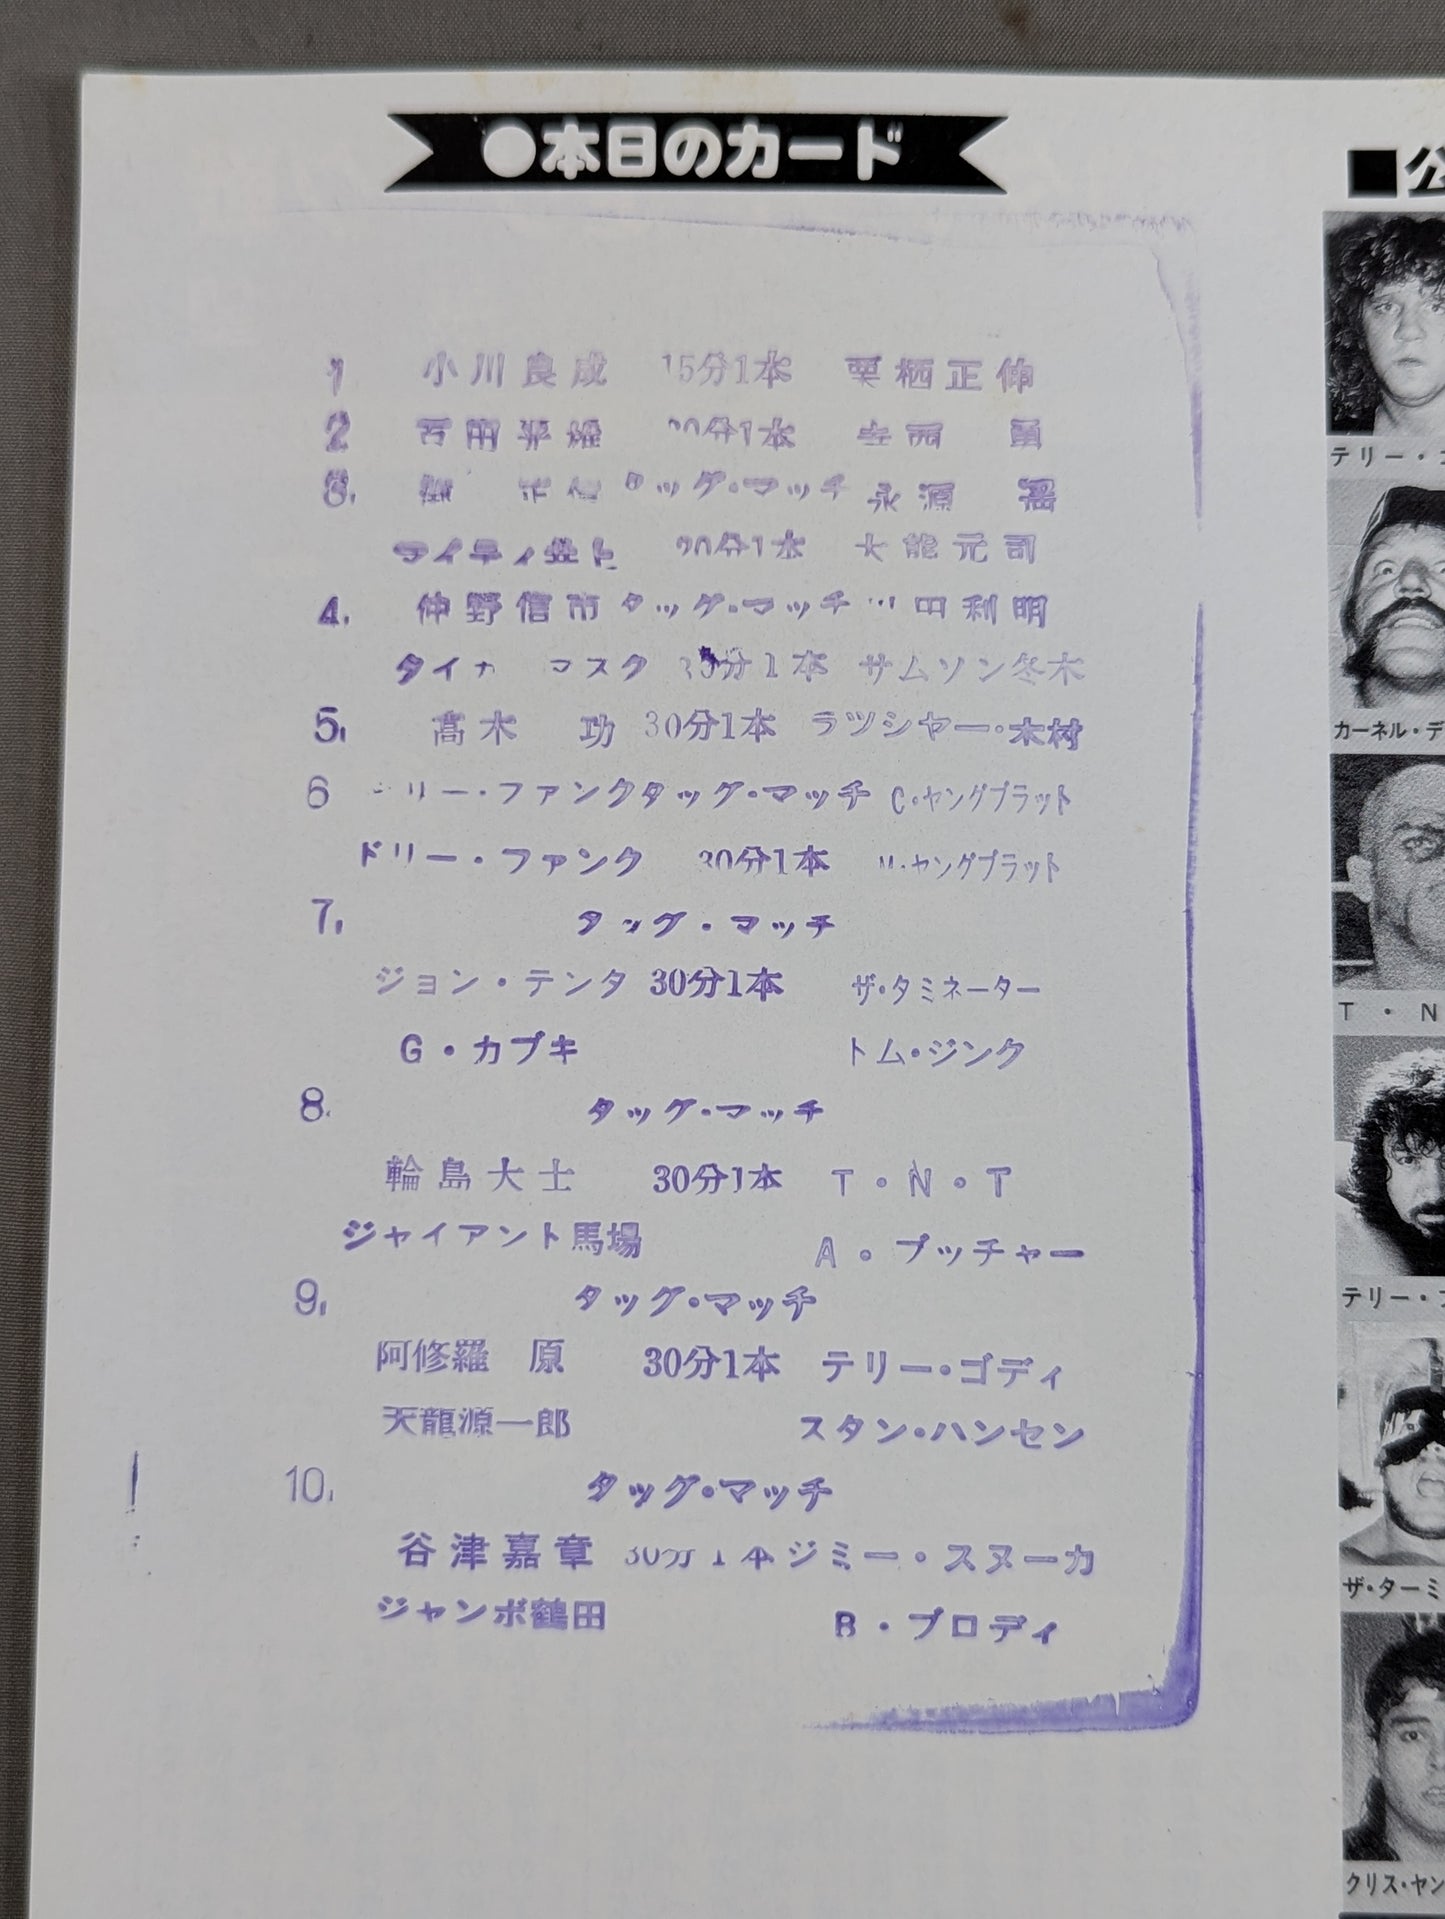 ●本日のカード
1 小川良成 15分1本 栗栖正伸
2 百田光雄 20分1本 寺西 勇
3. 正信 タッグ・マッチ 永源 遥
マイティ井上 20分1本 大熊元司
4. 仲野信市 タッグ・マッチ 川田利明
タイガーマスク 30分1本 サムソン冬木
5. 高木 功 30分1本 ラッシャー・木村
6 リー・ファンク タッグ・マッチ C・ヤングブラット
ドリー・ファンク 30分1本 M・ヤングブラット
7. タッグ・マッチ
ジョン・テンタ 30分1本 ザ・タミネーター
G・カブキ トム・ジンク
8. タッグ・マッチ
輪島大士 30分1本 T・N・T
ジャイアント馬場 A・ブッチャー
9. タッグ・マッチ
阿修羅 原 30分1本 テリー・ゴディ
天龍源一郎 スタン・ハンセン
10. タッグ・マッチ
谷津嘉章 30分1本 ジミー・スヌーカ
ジャンボ鶴田 B・ブロディ
■公
テリー・
カーネル・デ
T・N
テリー・
ザ・ターミ
クリス・ヤン